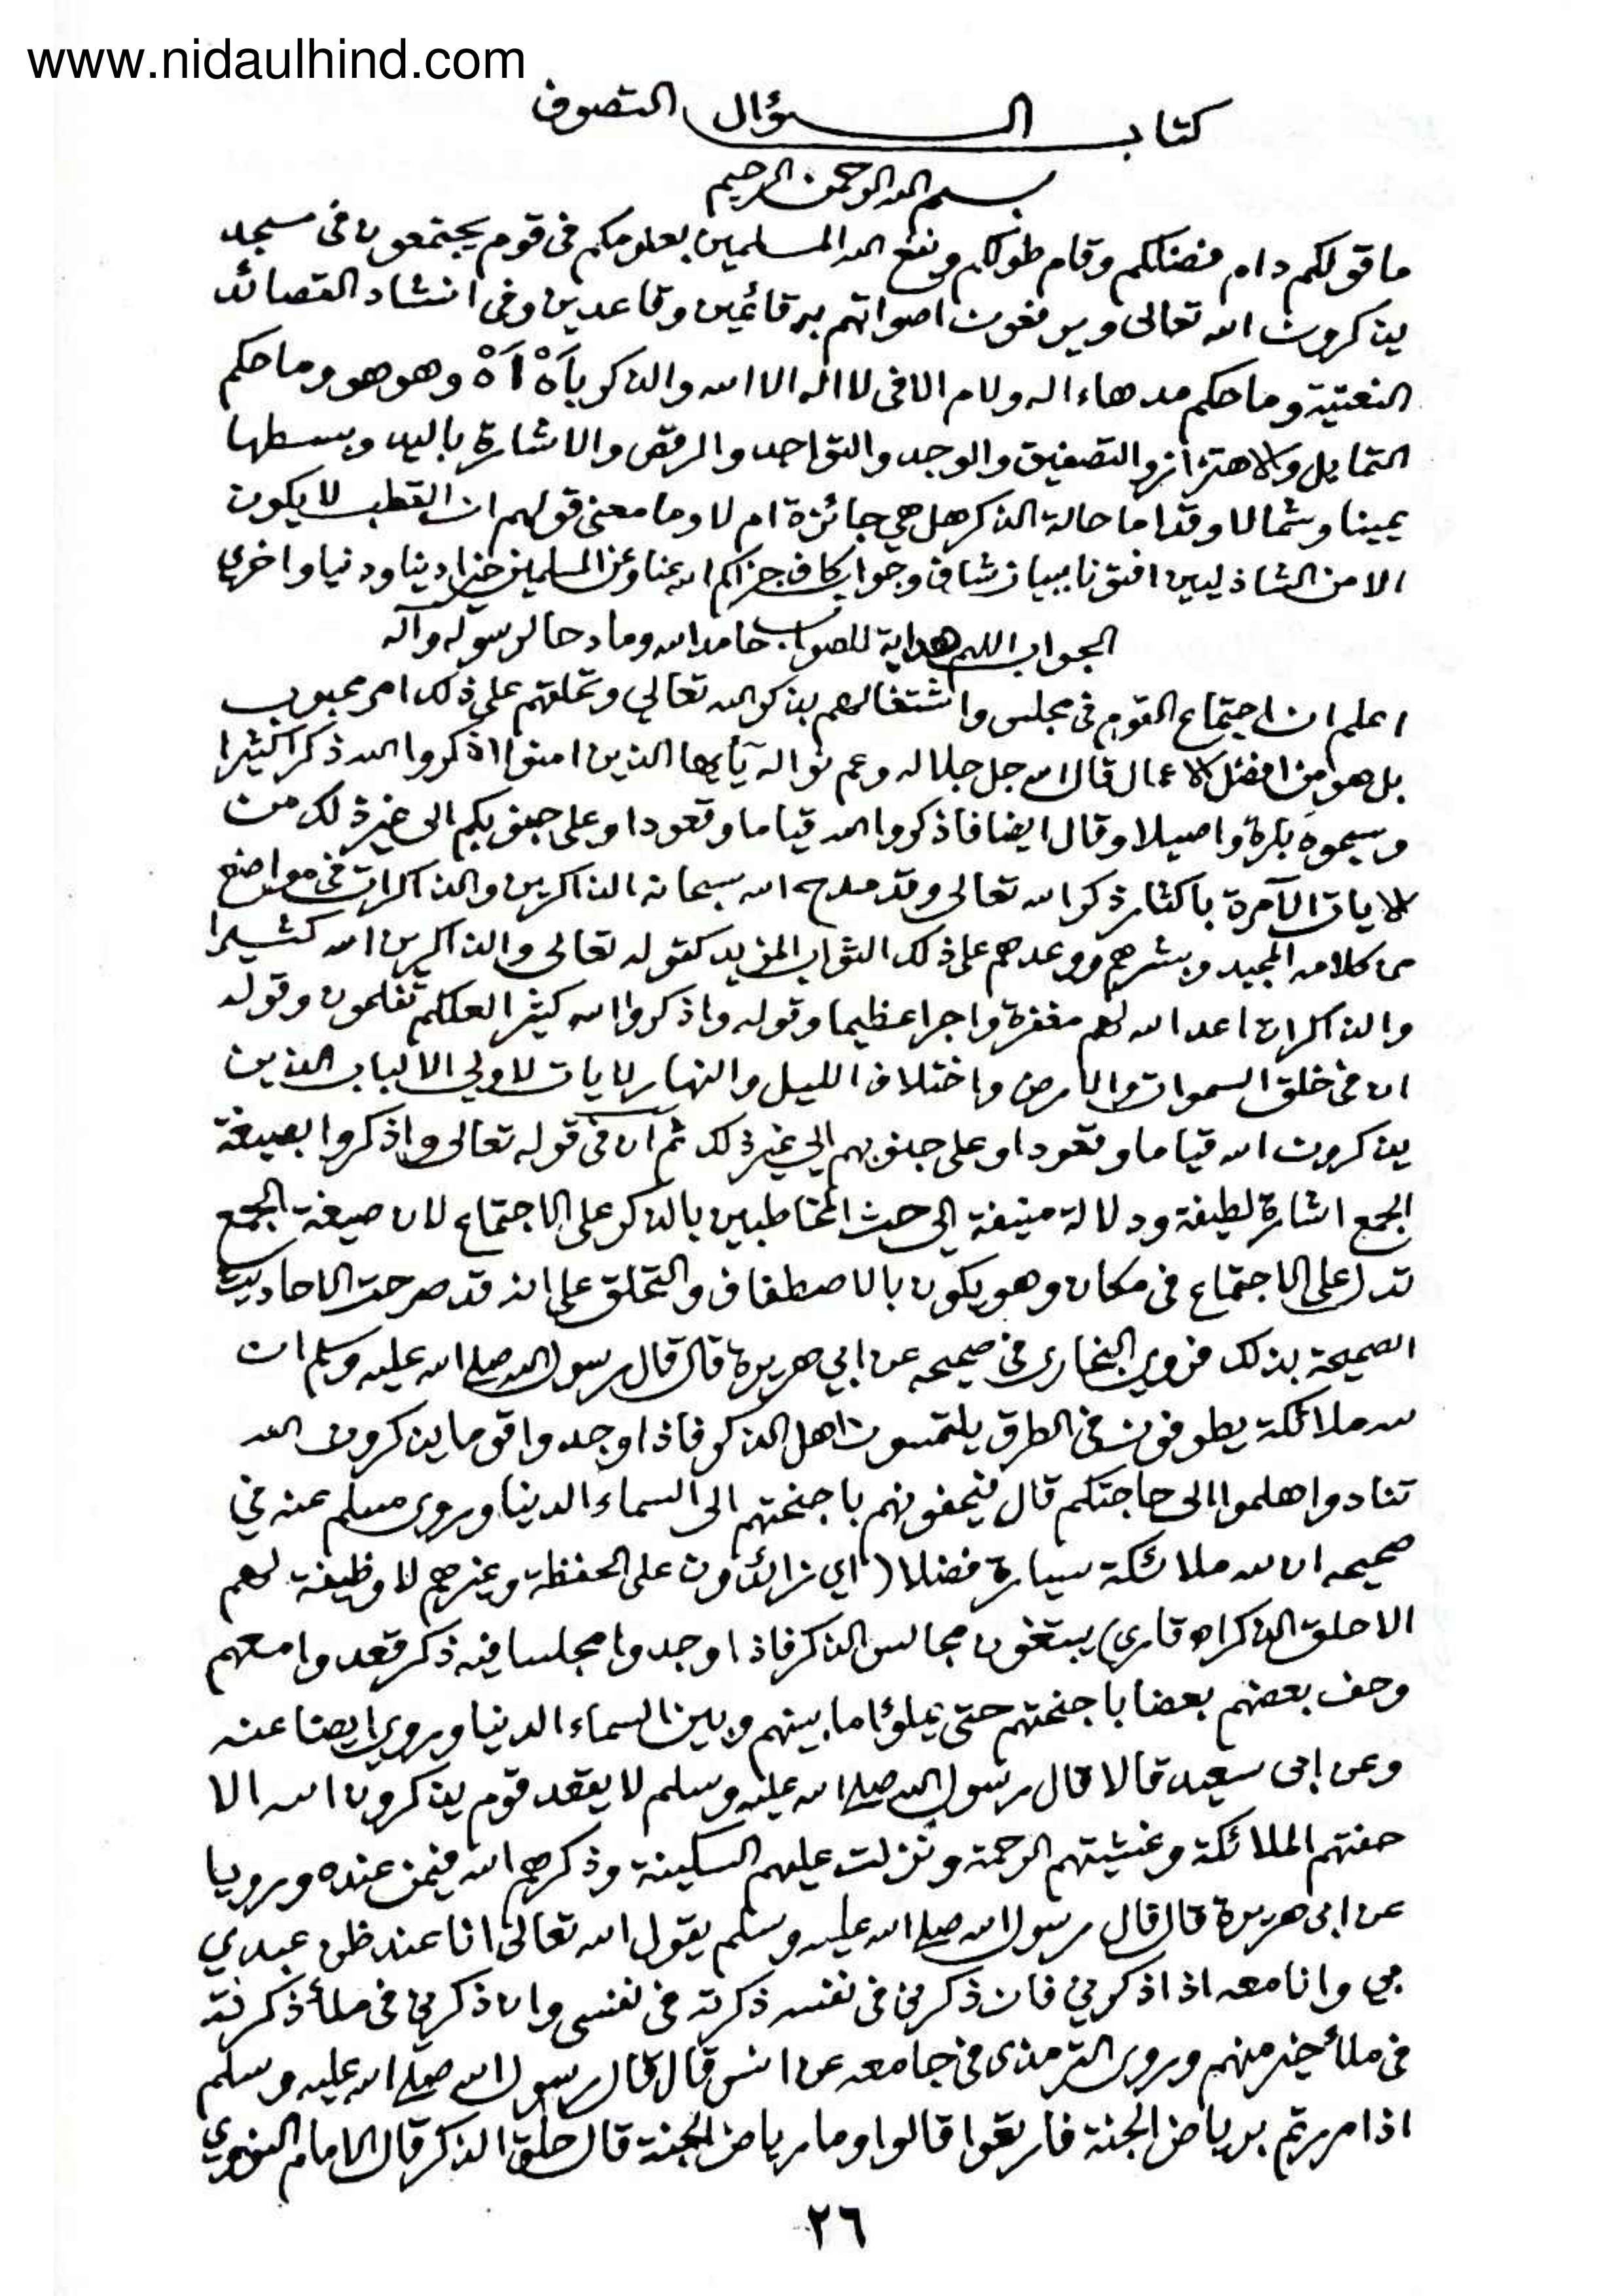 www.nidaulhind.com
كتاب السؤال التصوف
بسم الله الرحمن الرحيم
ما قولكم دام فضلكم وقام طولكم ونفع الله المسلمين بعلومكم فى قوم يجتمعون فى مسجد
يذكرون الله تعالى ويرفعون اصواتهم به قائمين وقاعدين وفى انشاد القصائد
النعتية وما حكم مد هاء اله ولام الا فى لا اله الا الله والذكر بآهْ اَهْ وهو هو وما حكم
التمايل والاهتزاز والتصفيق والوجد والتواجد والرقص والاشارة باليد وبسطها
يمينا وشمالا وقداما حالة الذكر هل هي جائزة ام لا وما معنى قولهم ان القطب لا يكون
الا من الشاذليين افتونا ببيان شاف وجواب كاف جزاكم الله عنا وعن المسلمين خيرا دينا ودنيا واخرى
الجواب اللهم هداية للصواب حامدا لله ومادحا لرسوله وآله
اعلم ان اجتماع القوم فى مجلس واشتغالهم بذكر الله تعالى وتحلقهم على ذلك امر محبوب
بل هو من افضل الاعمال قال الله جل جلاله وعم نواله يآيها الذين امنوا اذكروا الله ذكرا كثيرا
وسبحوه بكرة واصيلا وقال ايضا فاذكروا الله قياما وقعودا وعلى جنوبكم الى غير ذلك من
الايات الآمرة باكثار ذكر الله تعالى وقد مدح الله سبحانه الذاكرين والذاكرات فى مواضع
من كلامه المجيد وبشرهم ووعدهم على ذلك الثواب المزيد كقوله تعالى والذاكرين الله كثيرا
والذاكرات اعد الله لهم مغفرة واجرا عظيما وقوله واذكروا الله كثيرا لعلكم تفلحون وقوله
ان فى خلق السموات والارض واختلاف الليل والنهار لايات لاولي الالباب الذين
يذكرون الله قياما وقعودا وعلى جنوبهم الى غير ذلك ثم ان فى قوله تعالى واذكروا بصيغة
الجمع اشارة لطيفة ودلالة منيفة الى حث المخاطبين بالذكر على الاجتماع لان صيغة الجمع
تدل على الاجتماع فى مكان وهو يكون بالاصطفاف والتحلق على انه قد صرحت الاحاديث
الصحيحة بذلك فروى البخارى فى صحيحه عن ابي هريرة قال قال رسول الله صلى الله عليه وسلم ان
لله ملائكة يطوفون فى الطرق يلتمسون اهل الذكر فاذا وجدوا قوما يذكرون الله
تنادوا هلموا الى حاجتكم قال فيحفونهم باجنحتهم الى السماء الدنيا وروى مسلم عنه في
صحيحه ان لله ملائكة سيارة فضلا (اي زائدون على الحفظة وغيرهم لا وظيفة لهم
الا حلق الذكر اه قارى) يبتغون مجالس الذكر فاذا وجدوا مجلسا فيه ذكر قعدوا معهم
وحف بعضهم بعضا باجنحتهم حتى يملؤا ما بينهم وبين السماء الدنيا وروى ايضا عنه
وعن ابى سعيد قالا قال رسول الله صلى الله عليه وسلم لا يقعد قوم يذكرون الله الا
حفتهم الملائكة وغشيتهم الرحمة ونزلت عليهم السكينة وذكرهم الله فيمن عنده ورويا
عن ابى هريرة قال قال رسول الله صلى الله عليه وسلم يقول الله تعالى انا عند ظن عبدي
بي وانا معه اذا ذكرني فان ذكرنى فى نفسه ذكرته فى نفسى وان ذكرني فى ملأ ذكرته
فى ملأ خير منهم وروى الترمذى فى جامعه عن انس قال قال رسول الله صلى الله عليه وسلم
اذا مررتم برياض الجنة فارتعوا قالوا وما رياض الجنة قال حلق الذكر قال الامام النووي
٢٦